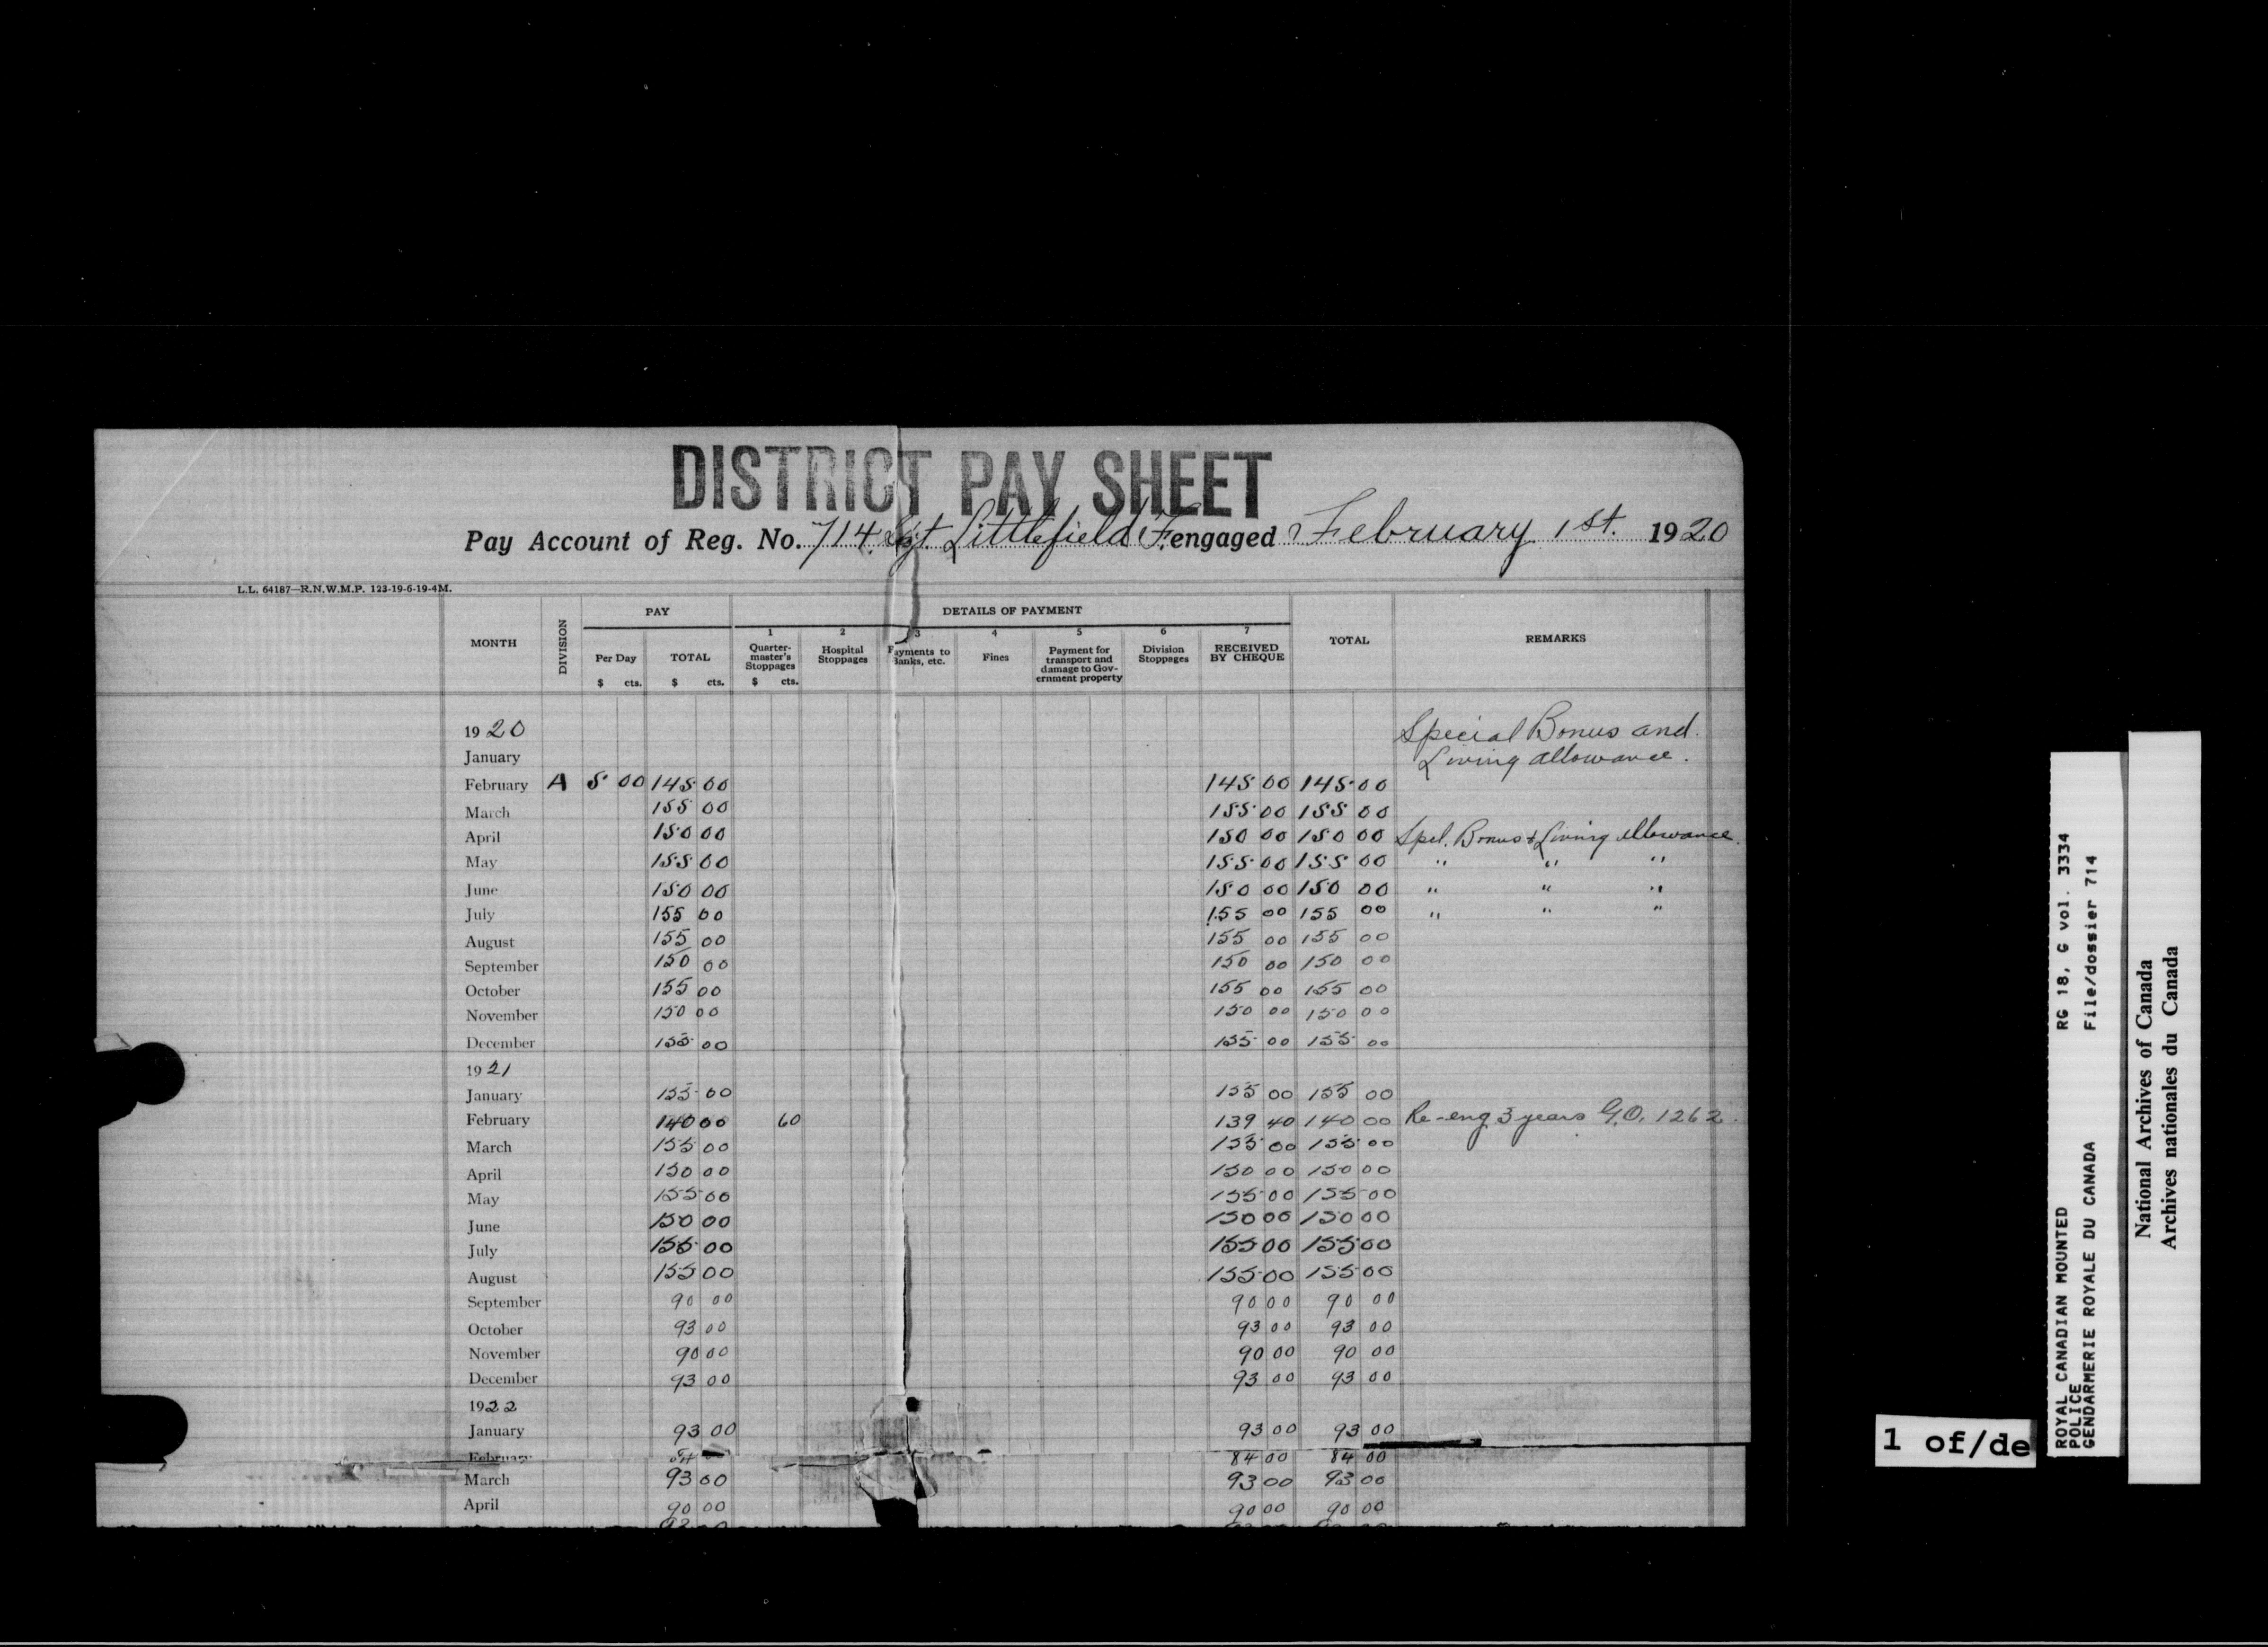 DISTRICT PAY SHEET
Pay Account of Reg. No. 714. Sgt. Littlefield F. engaged February 1st. 1920
L.L. 64187—R.N.W.M.P. 123-19-6-19-4M.
MONTH DIVISION PAY DETAILS OF PAYMENT TOTAL REMARKS
Per Day $ cts. TOTAL $ cts. 1 Quarter-master's Stoppages $ cts. 2 Hospital Stoppages 3 Payments to Banks, etc. 4 Fines 5 Payment for transport and damage to Government property 6 Division Stoppages 7 RECEIVED BY CHEQUE
1920 Special Bonus and
January Living allowance.
February A 5 00 145 00 145 00 145 00
March 155 00 155 00 155 00
April 150 00 150 00 150 00 Spcl. Bonus & Living allowance.
May 155 00 155 00 155 00 " " "
June 150 00 150 00 150 00 " " "
July 155 00 155 00 155 00 " " "
August 155 00 155 00 155 00
September 150 00 150 00 150 00
October 155 00 155 00 155 00
November 150 00 150 00 150 00
December 155 00 155 00 155 00
1921
January 155 00 155 00 155 00
February 140 00 60 139 40 140 00 Re-eng 3 years G.O. 1262.
March 155 00 155 00 155 00
April 150 00 150 00 150 00
May 155 00 155 00 155 00
June 150 00 150 00 150 00
July 155 00 155 00 155 00
August 155 00 155 00 155 00
September 90 00 90 00 90 00
October 93 00 93 00 93 00
November 90 00 90 00 90 00
December 93 00 93 00 93 00
1922
January 93 00 93 00 93 00
February 84 84 00 84 00
March 93 00 93 00 93 00
April 90 00 90 00 90 00
1 of/de
ROYAL CANADIAN MOUNTED POLICE RG 18, G vol. 3334
GENDARMERIE ROYALE DU CANADA File/dossier 714
National Archives of Canada
Archives nationales du Canada